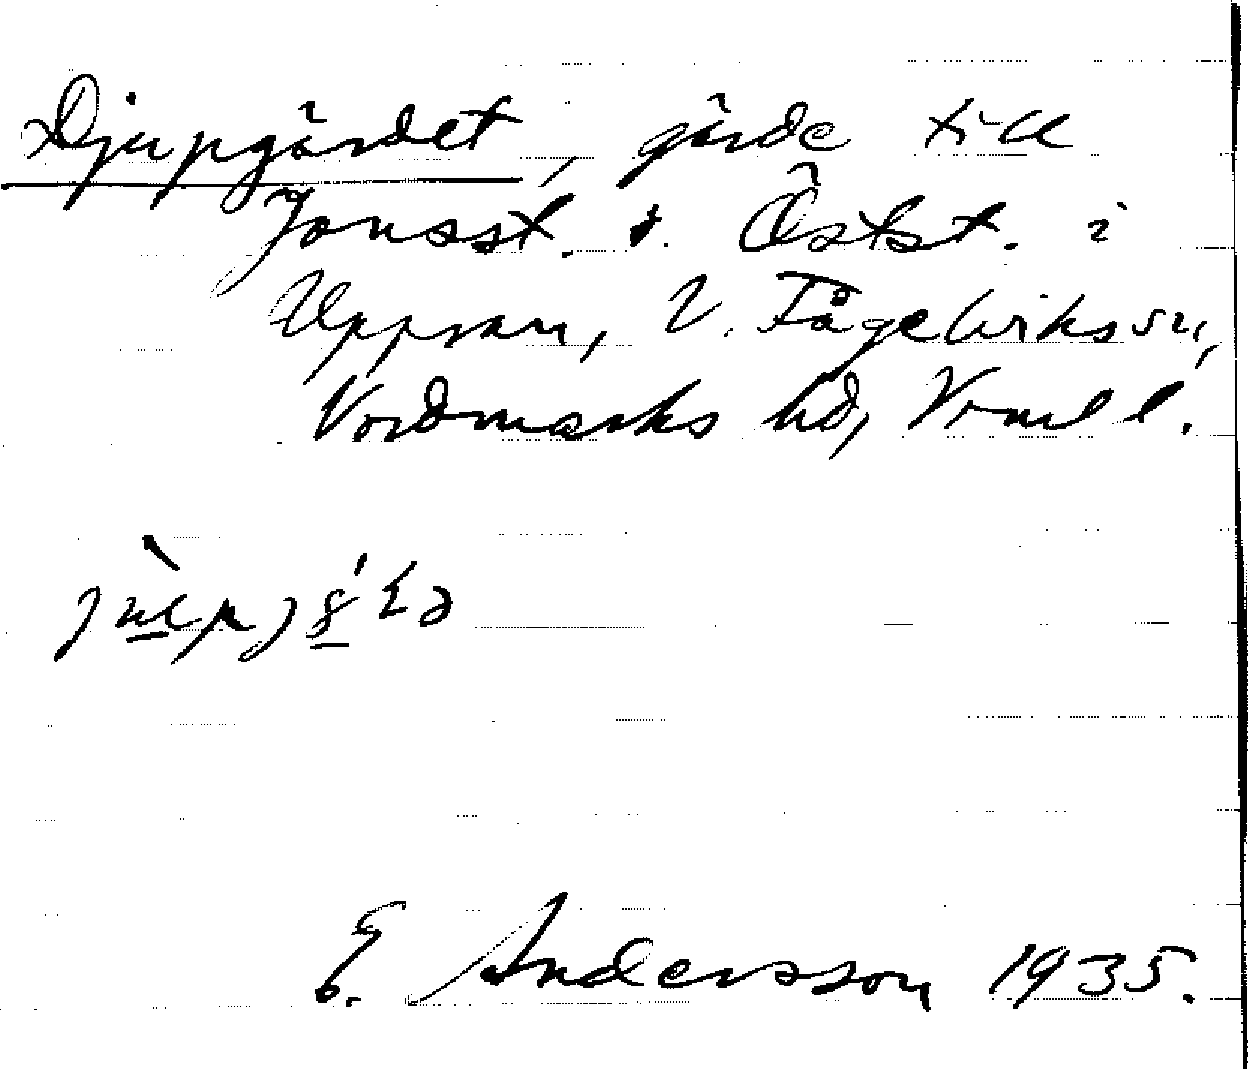 Djupgärdet, gärde till
Jonsst. o. Östst. i
Uppran, V. Fågelvikssn,
Nordmarks hd, Vrml l.
E. Andersson 1935.